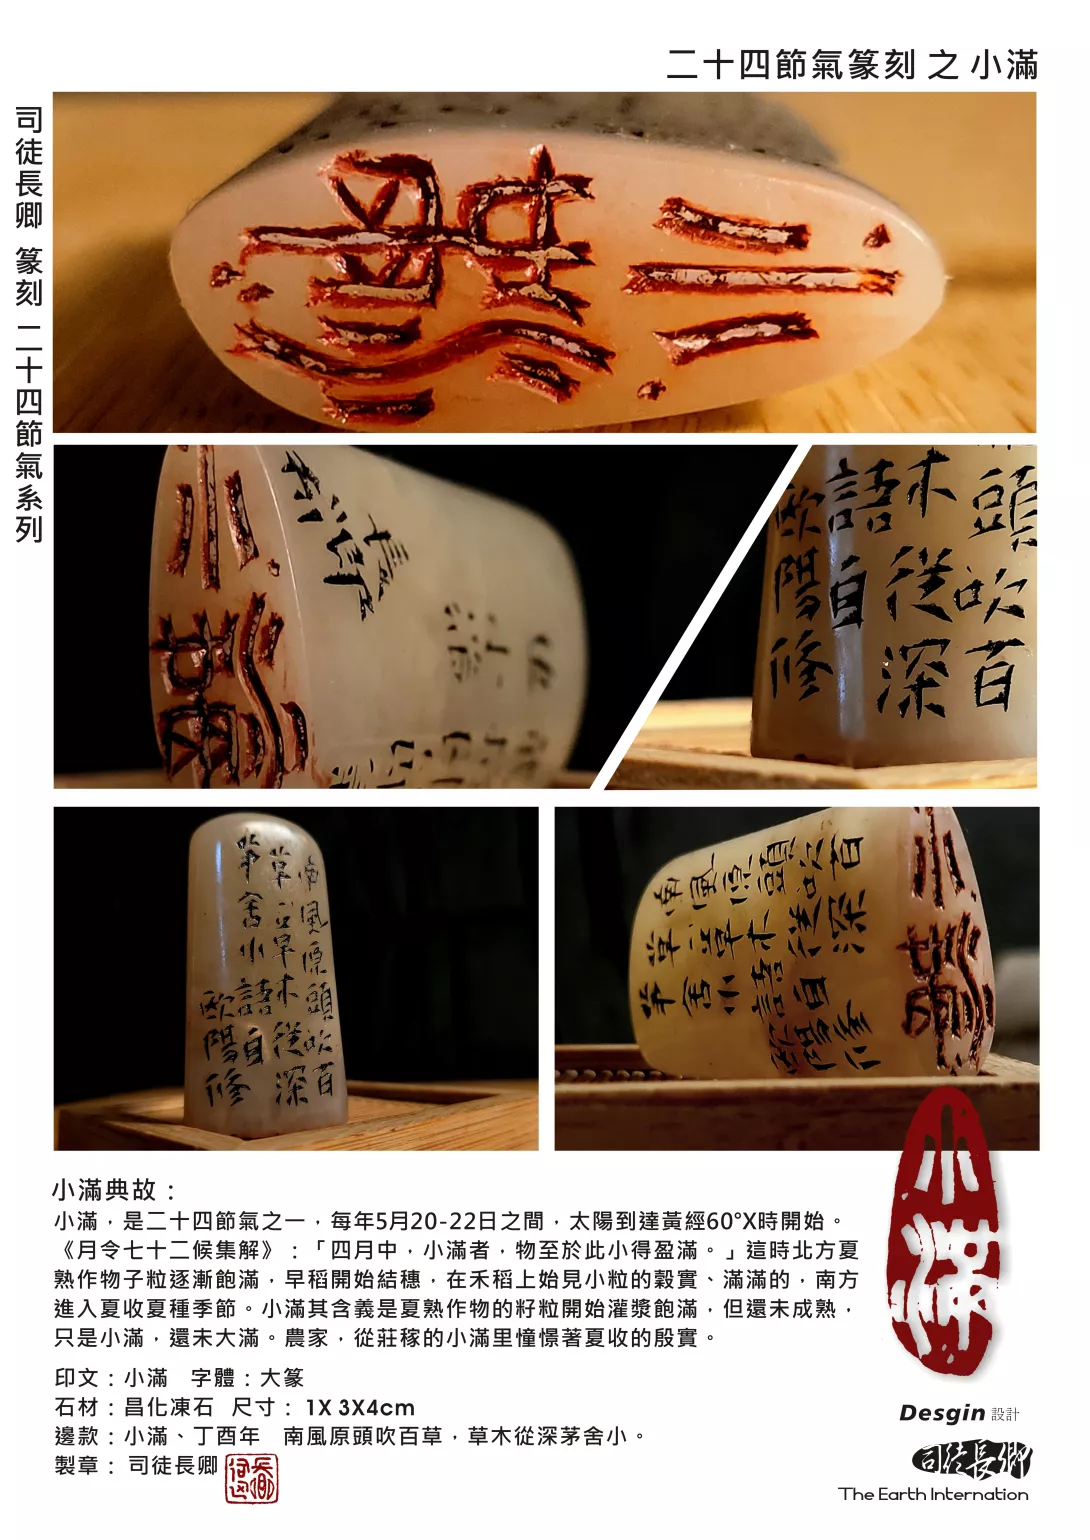 二十四節氣篆刻 之 小滿
司徒長卿 篆刻 二十四節氣系列
小滿
長卿
頭吹百
木從深
語自
歐陽修
南風原頭吹百
草草木從深
茅舍小語自
歐陽修
南風原頭吹百
草草木從深
茅舍小語自
歐陽修
小滿
小滿典故：
小滿，是二十四節氣之一，每年5月20-22日之間，太陽到達黃經60°X時開始。
《月令七十二候集解》：「四月中，小滿者，物至於此小得盈滿。」這時北方夏
熟作物子粒逐漸飽滿，早稻開始結穗，在禾稻上始見小粒的穀實、滿滿的，南方
進入夏收夏種季節。小滿其含義是夏熟作物的籽粒開始灌漿飽滿，但還未成熟，
只是小滿，還未大滿。農家，從莊稼的小滿里憧憬著夏收的殷實。
印文：小滿 字體：大篆
石材：昌化凍石 尺寸： 1X 3X4cm
邊款：小滿、丁酉年 南風原頭吹百草，草木從深茅舍小。
製章： 司徒長卿
小滿
Desgin 設計
司徒長卿
The Earth Internation